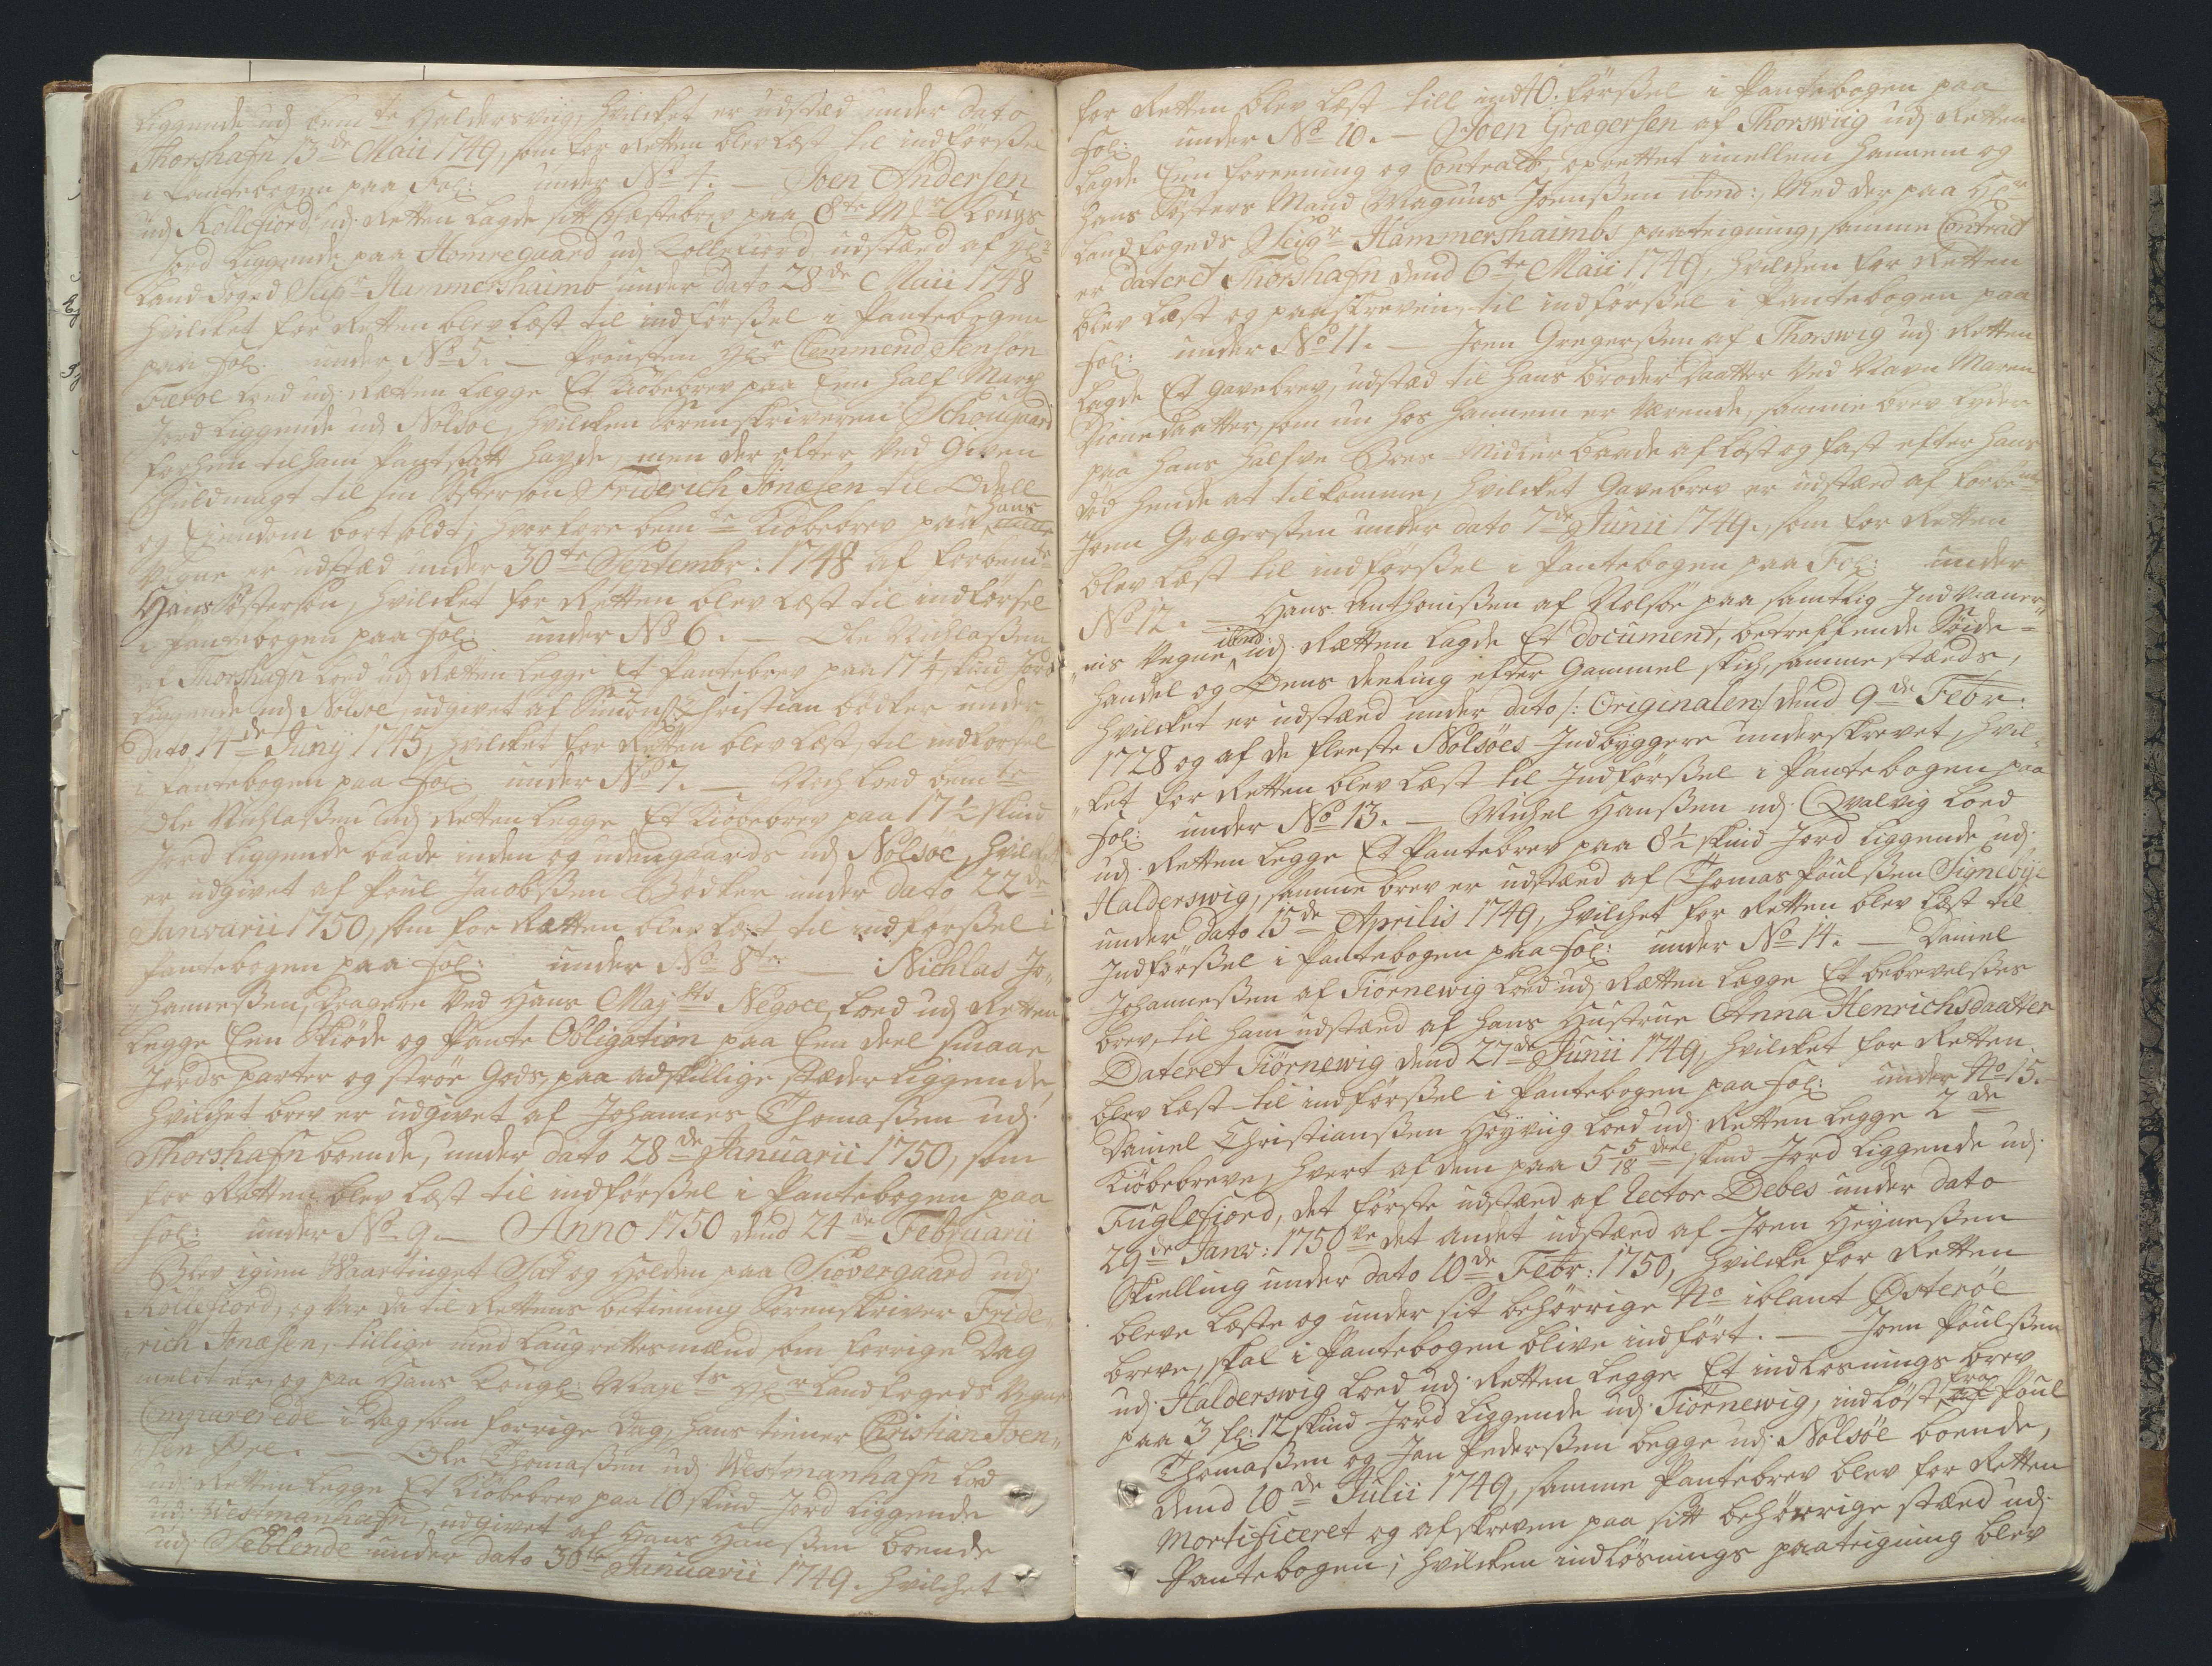 Liggende udj bem.te Haldersviig, hvilcket er udstæd under Dato
Thorshafn 13de Maii 1749, som for Retten blev læst til indførsel
i Pantebogen paa Fol: under No 4. — Joen Andersen
udj Kollefiord, udj Retten lagde sit Fæstebrev paa 8te Mr. Kongs
Jord Liggende paa Homregaard udj Kollefiord udstæd af Hr.
Land Foged Sieur Hammershaimb under Dato 28de Maii 1748
hvilcket for Retten blev læst til indførßel i Pantebogen
paa Fol: under No 5. — Prousten Hr. Clemmend Jenson
Færøe loed udj Rætten Legge Et Kiøbebrev paa Een half March
Jord Liggende udj Nolsøe, hvilcken Sorenskriveren Schougaard
forhen til ham Pantsatt havde, men der efter ved Given
Fuldmagt til sin Søstersøn Friderich Jonæsen til Odell
og Eiendom bortsoldt; hvorfore bem.te Kiøbebrev paa hans
Vegne er udstæd under 30te Septembr: 1748 af forbem.te
Hans Søstersøn, hvilcket for Retten blev læst til indførsel
i Pantebogen paa Fol: under No 6. — Ole Nichlaßen
af Thorshafn loed udj Rætten Legge Et Pantebrev paa 17½ skind Jord
Liggende udj Nolsøe, udgivet af Simon Christian Bødker under
Dato 14de Junij 1745, hvilcket for Retten blev læst, til indførsel
i Pantebogen paa Fol: under No 7. — Noch loed bemte
Ole Nichlaßen udj Retten Legge Et Kiøbebrev paa 17½ skind
Jord liggende baade inden og udengaards udj Nolsøe, hvilket
er udgivet af Poul Jacobßen Bødker under Dato 22de
Januarii 1750, som for Rætten blev læst til indførßel i
Pantebogen paa Fol: under No 8te. — Nichlas Jo„
„hanneßen, Dragere ved Hans Maysts Negoce, loed udj Retten
Legge Een Skiøde og Pante Obligation paa Een deel smaae
Jords parter og strøe Gods, paa adskillige stæder liggende,
hvilchet brev er udgivet af Johannes Thomaßen udj
Thorshafn boende, under Dato 28de Januarii 1750, som
for Retten blev læst til indførßel i Pantebogen paa
Fol: under No 9. — Anno 1750 dend 24de Februarii
Blev igien Waartinget Sat og Holden paa Siovergaard udj
Kollefiord, og var da til Rettens betiening Sorenskriver Fride„
„rich Jonæsen, tillige med Laugrettesmænd som forrige Dag
meldt er, og paa Hans Kongl: Mayets Hr Landfogeds Vegne
Comparerede i Dag som forrige Dag, hans tiener Christian Joen„
„sen Øre. — Ole Thomaßen udj Westmanhafn lod
udj Retten Legge Et Kiøbebrev paa 10 skind Jord Liggende
udj Westmanhafn, udgivet af Hans Hanßen boende
udj Leblende under Dato 30te Januarii 1749. Hvilchet
for Retten blev læst till ind10. førßel i Pantebogen paa
Fol: under No 10. — Joen Grægersen af Thorswiig udj Retten
lagde Een Foreening og Contract, oprettet imellem Hannem og
hans Søsters Mand Magnus Joenßen ibmd: Med der paa Hr
Landfogeds Sieur Hammershaimbs paateigning, samme Contract
er Dateret Thorshafn dend 6te Maii 1749, hvilchen for Retten
blev læst og paaskreven, til indførßel i Pantebogen paa
Fol: under No 11. — Joen Gregerßen af Thorswig udj Retten
lagde Et Gavebrev, udstæd til hans broder Daatter ved Navn Maren
Dionedaatter, som nu hos hannem er værende, samme brev lyder
paa hans halfve Boes Midler baade af løst og fast efter hans
død hende at tilkomme, hvilcket Gavebrev er udstæd af forbemte
Joen Grægerßen under Dato 7de Junii 1749, som for Retten
blev læst til indførßel i Pantebogen paa Fol: under
No 12. — Hans Anthonißen af Nolsøe paa samtlig Indvaaner„
„nis Vegne ibmd: udj Rætten lagde Et Document, betreffende Søide=
handel og Øens Deeling efter Gammel skich, samme stæds,
hvilcket er udstæd under Dato /: Originalen:/ dend 9de Febr:
1728 og af de fleeste Nolsøes Indbyggere underskrevet, hvil„
„ket for Retten blev læst til Indførßel i Pantebogen paa
Fol: under No 13. — Michel Hanßen udj Qvalvig loed
udj Retten Legge Et Pantebrev paa 8½ skind Jord Liggende udj
Halderswig, samme brev er udstæd af Thomas Poulßen Signebye
under Dato 15de Aprilis 1749, hvilchet for Retten blev læst til
Indførßel i Pantebogen paa Fol: under No 14. — Daniel
Johanneßen af Tiørnewig loed udj Rætten Legge Et bebrevelßes
brev, til ham udstæd af hans Hustrue Anna Henrichsdaatter
Dateret Tiørnewig dend 27de Junii 1749, hvilcket for Retten
blev læst til indførßel i Pantebogen paa Fol: under No 15.
Daniel Christianßen Høyviig loed udj Retten Legge 2de
Kiøbebreve, hvert af dem paa 5 5/18 deel skind Jord liggende udj
Fuglefiord, det første udstæd af Rector Debes under Dato
29de Janv: 1750 det andet udstæd af Joen Heyneßen
Skielling under Dato 10de Febr: 1750, hvilcke for Retten
bleve læste og under sit behørrige No iblant Østerøe
breve, skal i Pantebogen blive indført. — Joen Poulßen
udj Halderswig loed udj Retten Legge Et indløsnings brev
paa 3 fl: 12 skind Jord liggende udj Tiørnewig, indløst fra Poul
Thomaßen og Jon Pederßen begge udj Nolsøe boende,
dend 10de Julii 1749, samme Pantebrev blev for Retten
Mortificeret og afskreven paa sitt behørrige stæd udj
Pantebogen; hvilcken indløsnings paateigning blev